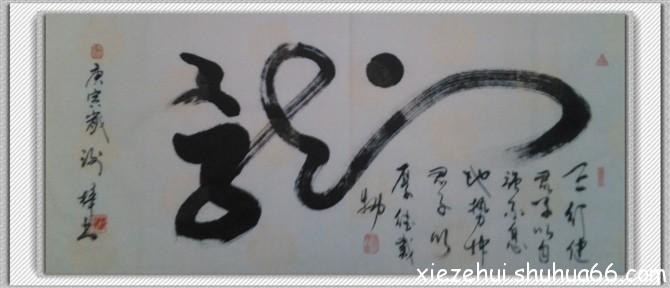 龍
天行健
君子以自
强不息
地势坤
君子以
厚德载
物
庚寅歲
xiezehui.shuhua66.com